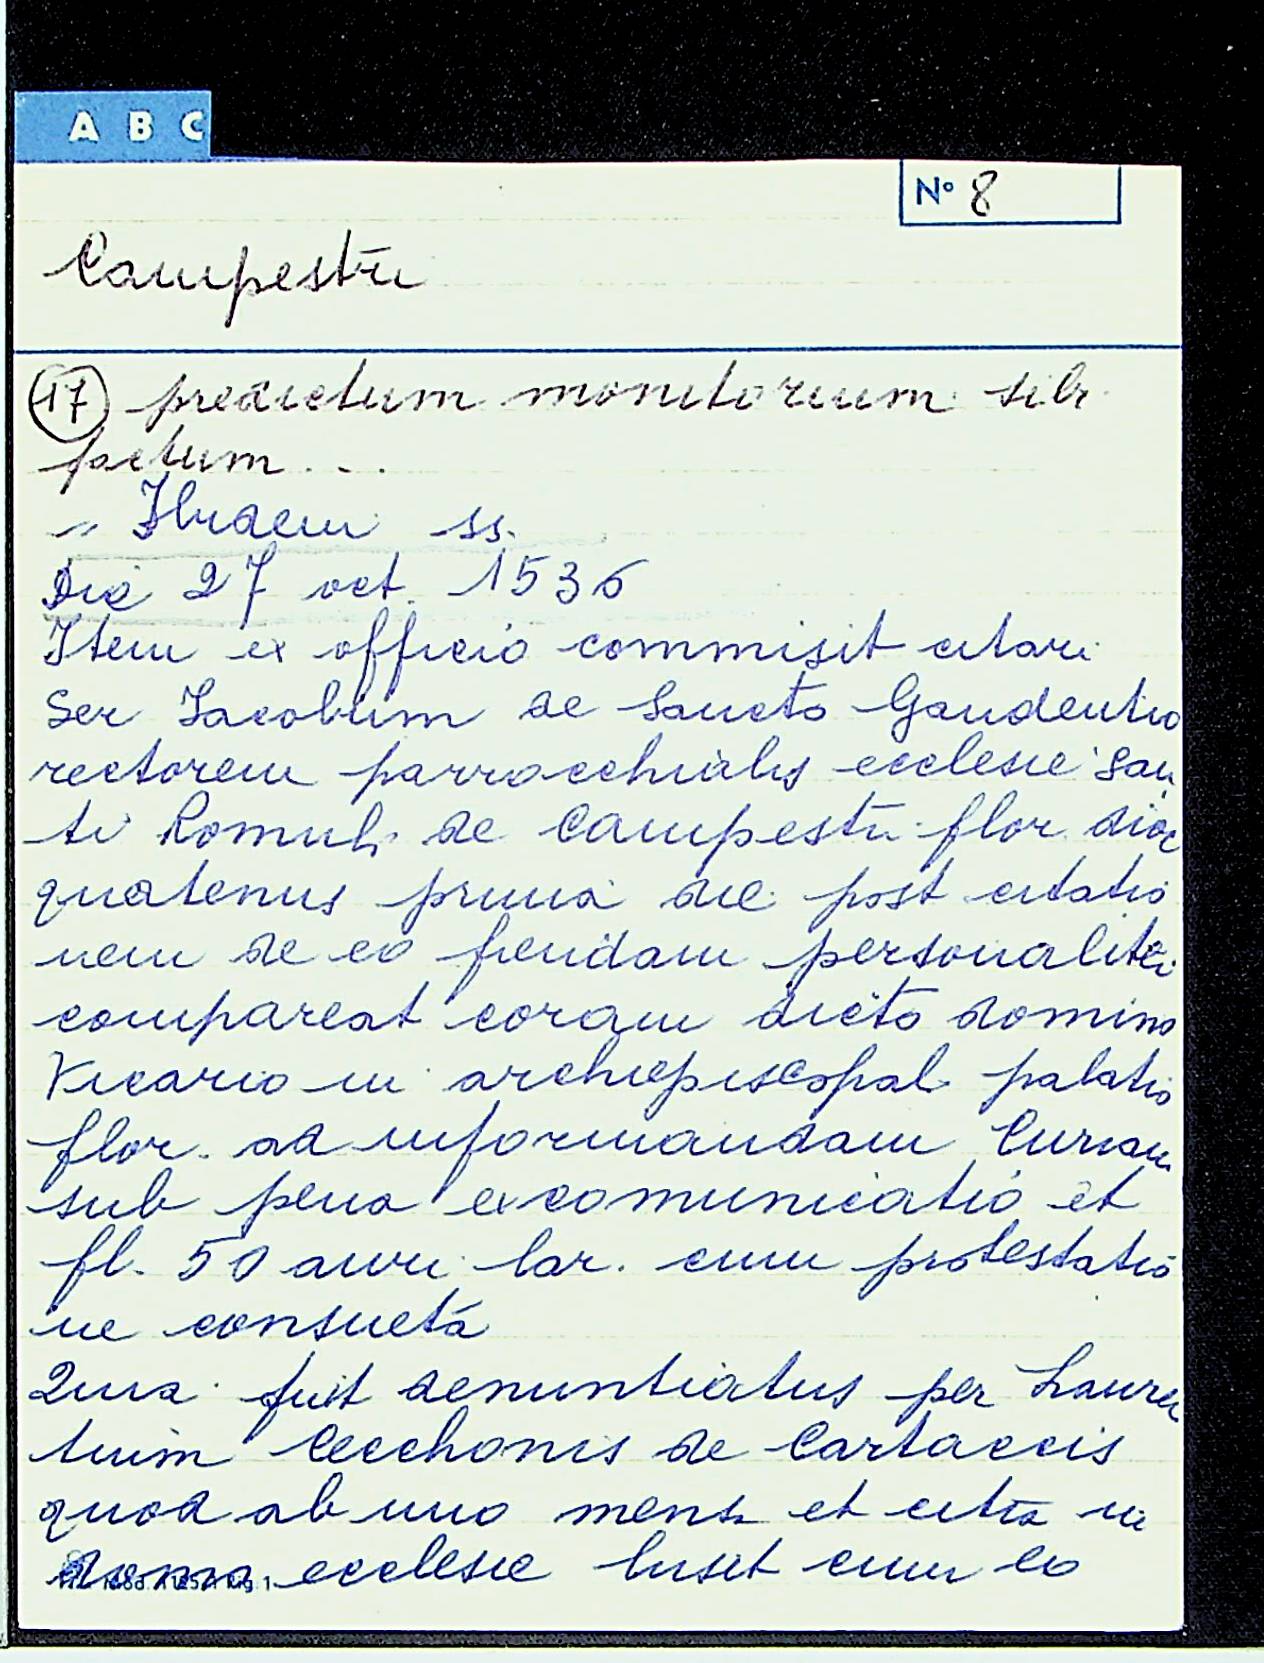 A B C
Nº 8
Campestri
17 predictum monitorium sibi
factum...
" Ibidem ss.
Die 27 oct. 1536
Item ex officio commisit citari
Ser Iacobum de Sancto Gaudentio
rectorem parrocchialis ecclesie San
ti Romuli de Campestri flor. dioc
quatenus prima die post citatio
nem de eo fiendam personaliter
compareat coram dicto domino
Vicario in archiepiscopali palatio
flor. ad informandam Curiam
sub pena excomunicatio et
fl. 50 auri lar. cum protestatio
ne consueta
Quia fuit denuntiatus per Lauren
tium Cecchonis de Cartaccis
quod ab uno mense et citra in
domo ecclesie lusit cum eo